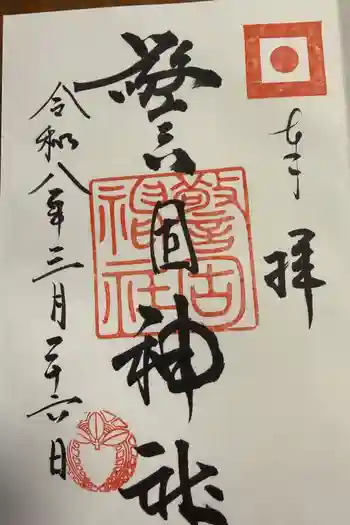 奉拝
警固神社
令和八年三月二十六日
警固
神社